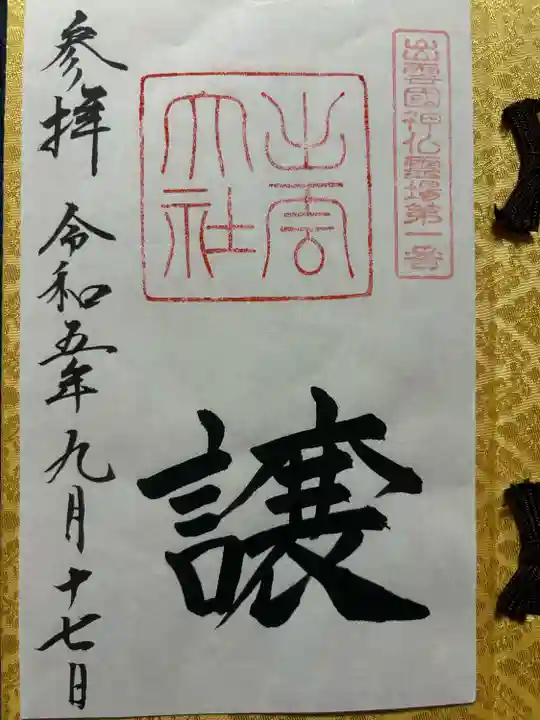 出雲國神仏霊場第一番
出雲
大社
譲
参拝 令和五年九月十七日